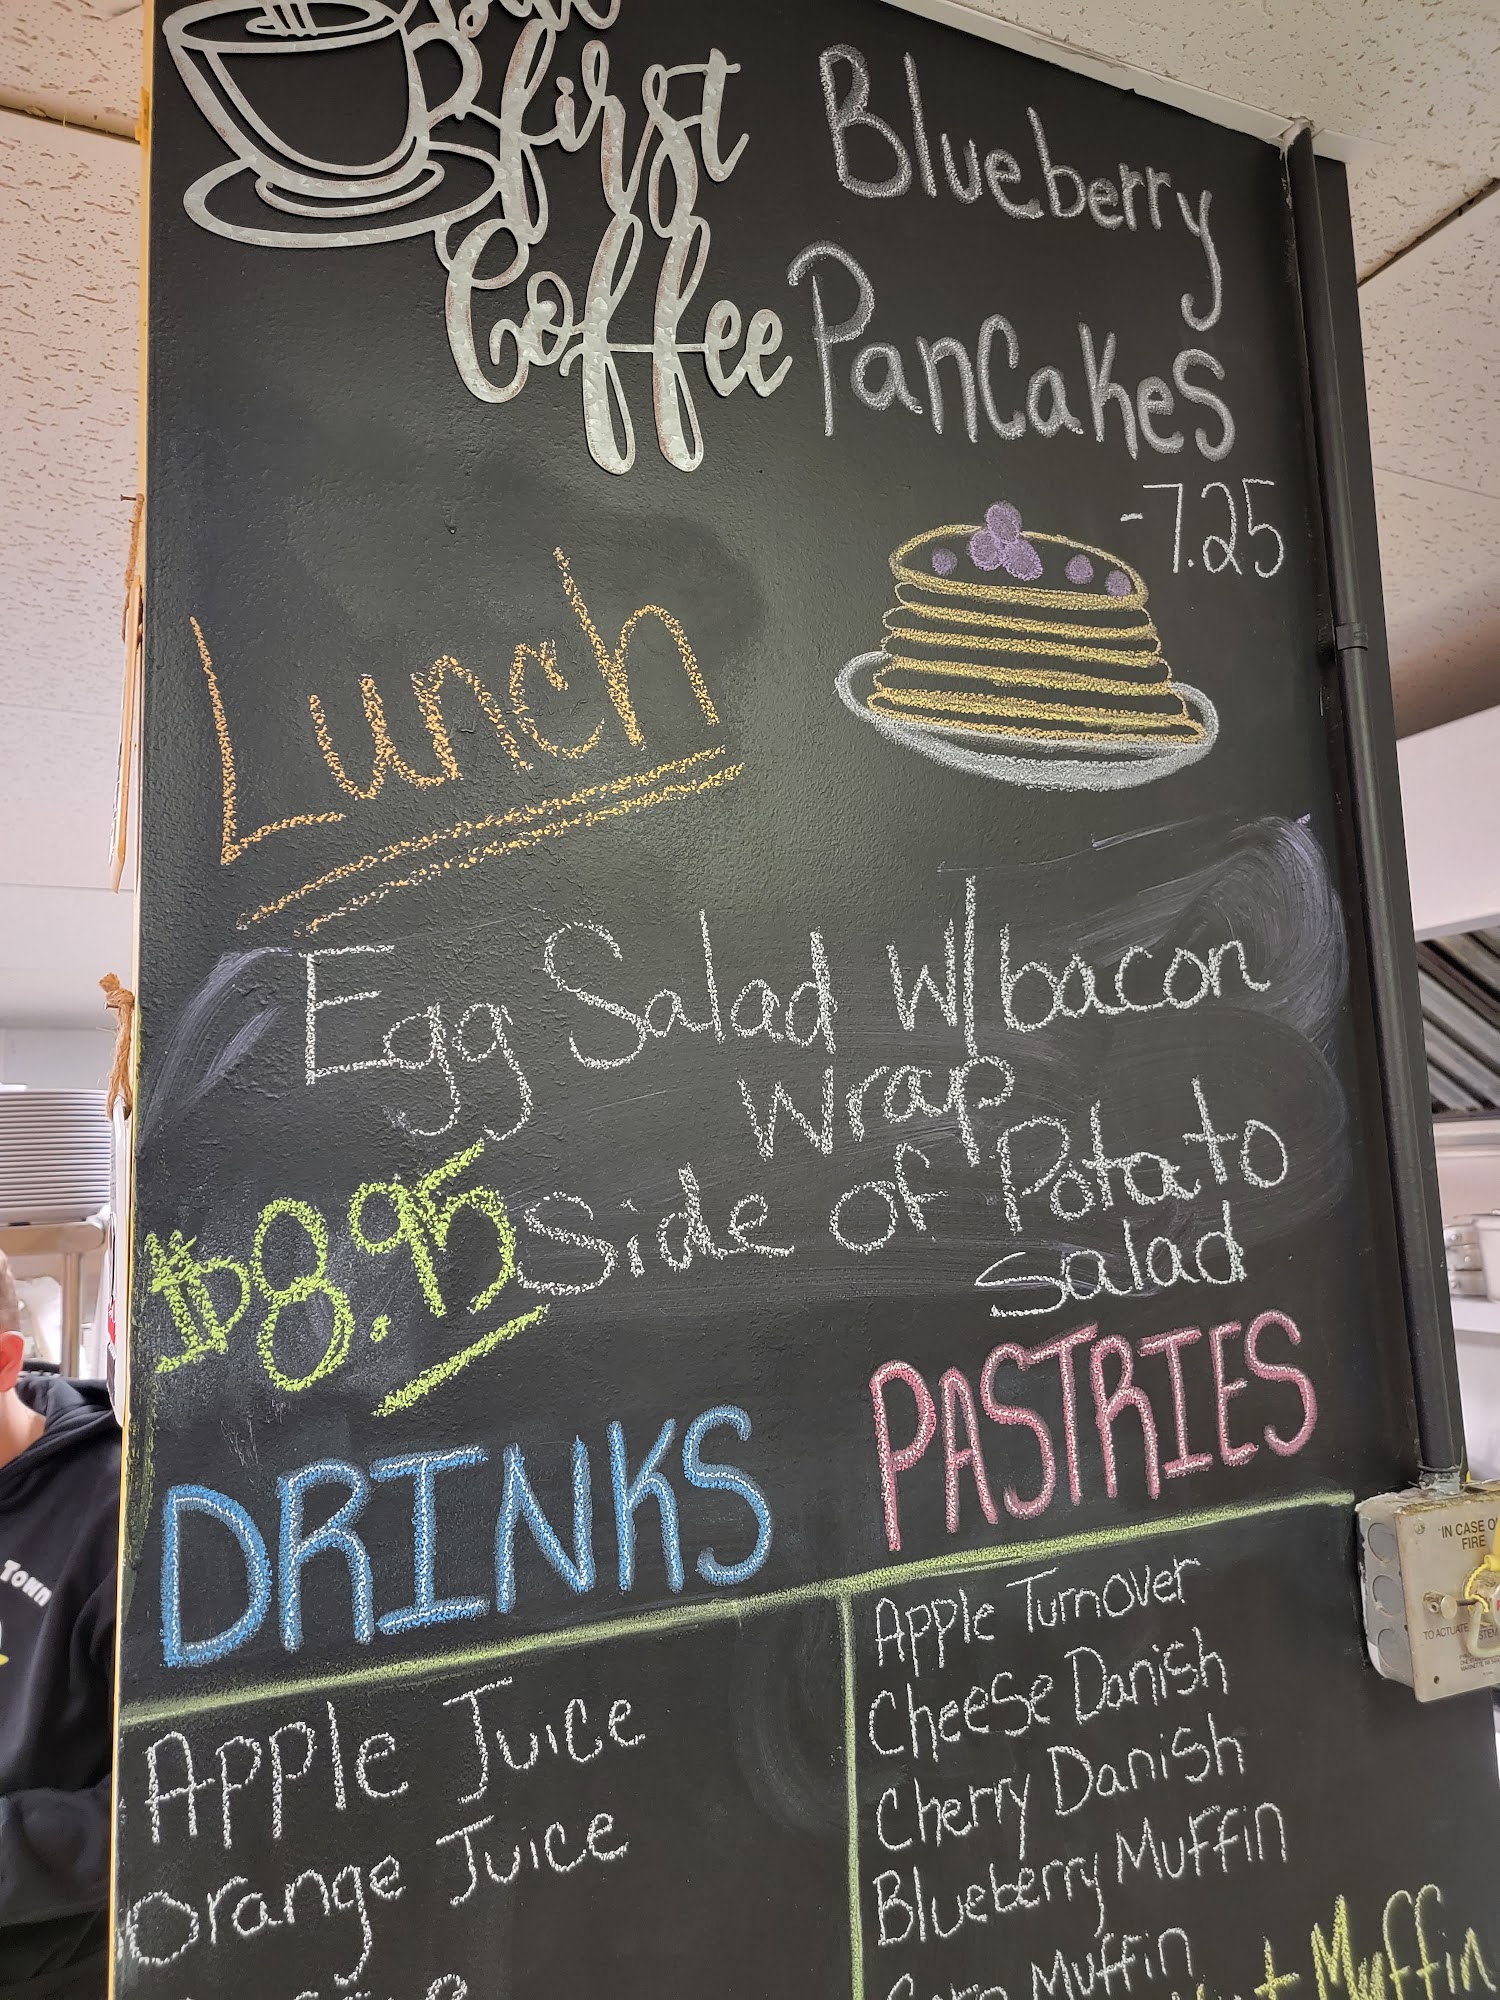 first
Coffee
Blueberry
Pancakes
-7.25
Lunch
Egg Salad w/bacon
Wrap
Side of Potato
Salad
$8.95
DRINKS
Apple Juice
Orange Juice
PASTRIES
Apple Turnover
Cheese Danish
Cherry Danish
Blueberry Muffin
Muffin
Muffin
IN CASE OF
FIRE
TO ACTUATE
TOWN